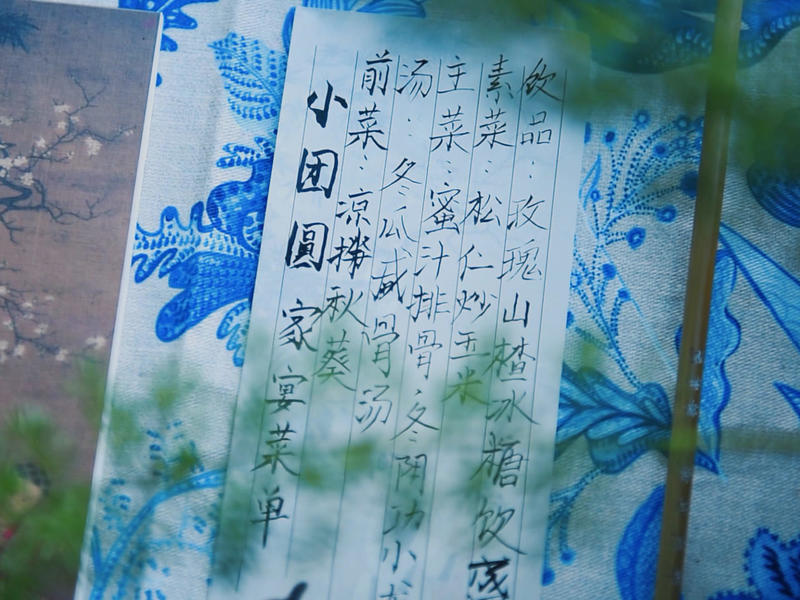 小团圆家宴菜单
前菜：凉撈秋葵
汤：冬瓜咸骨汤
主菜：蜜汁排骨 冬阴功小
素菜：松仁炒玉米
饮品：玫瑰山楂冰糖饮